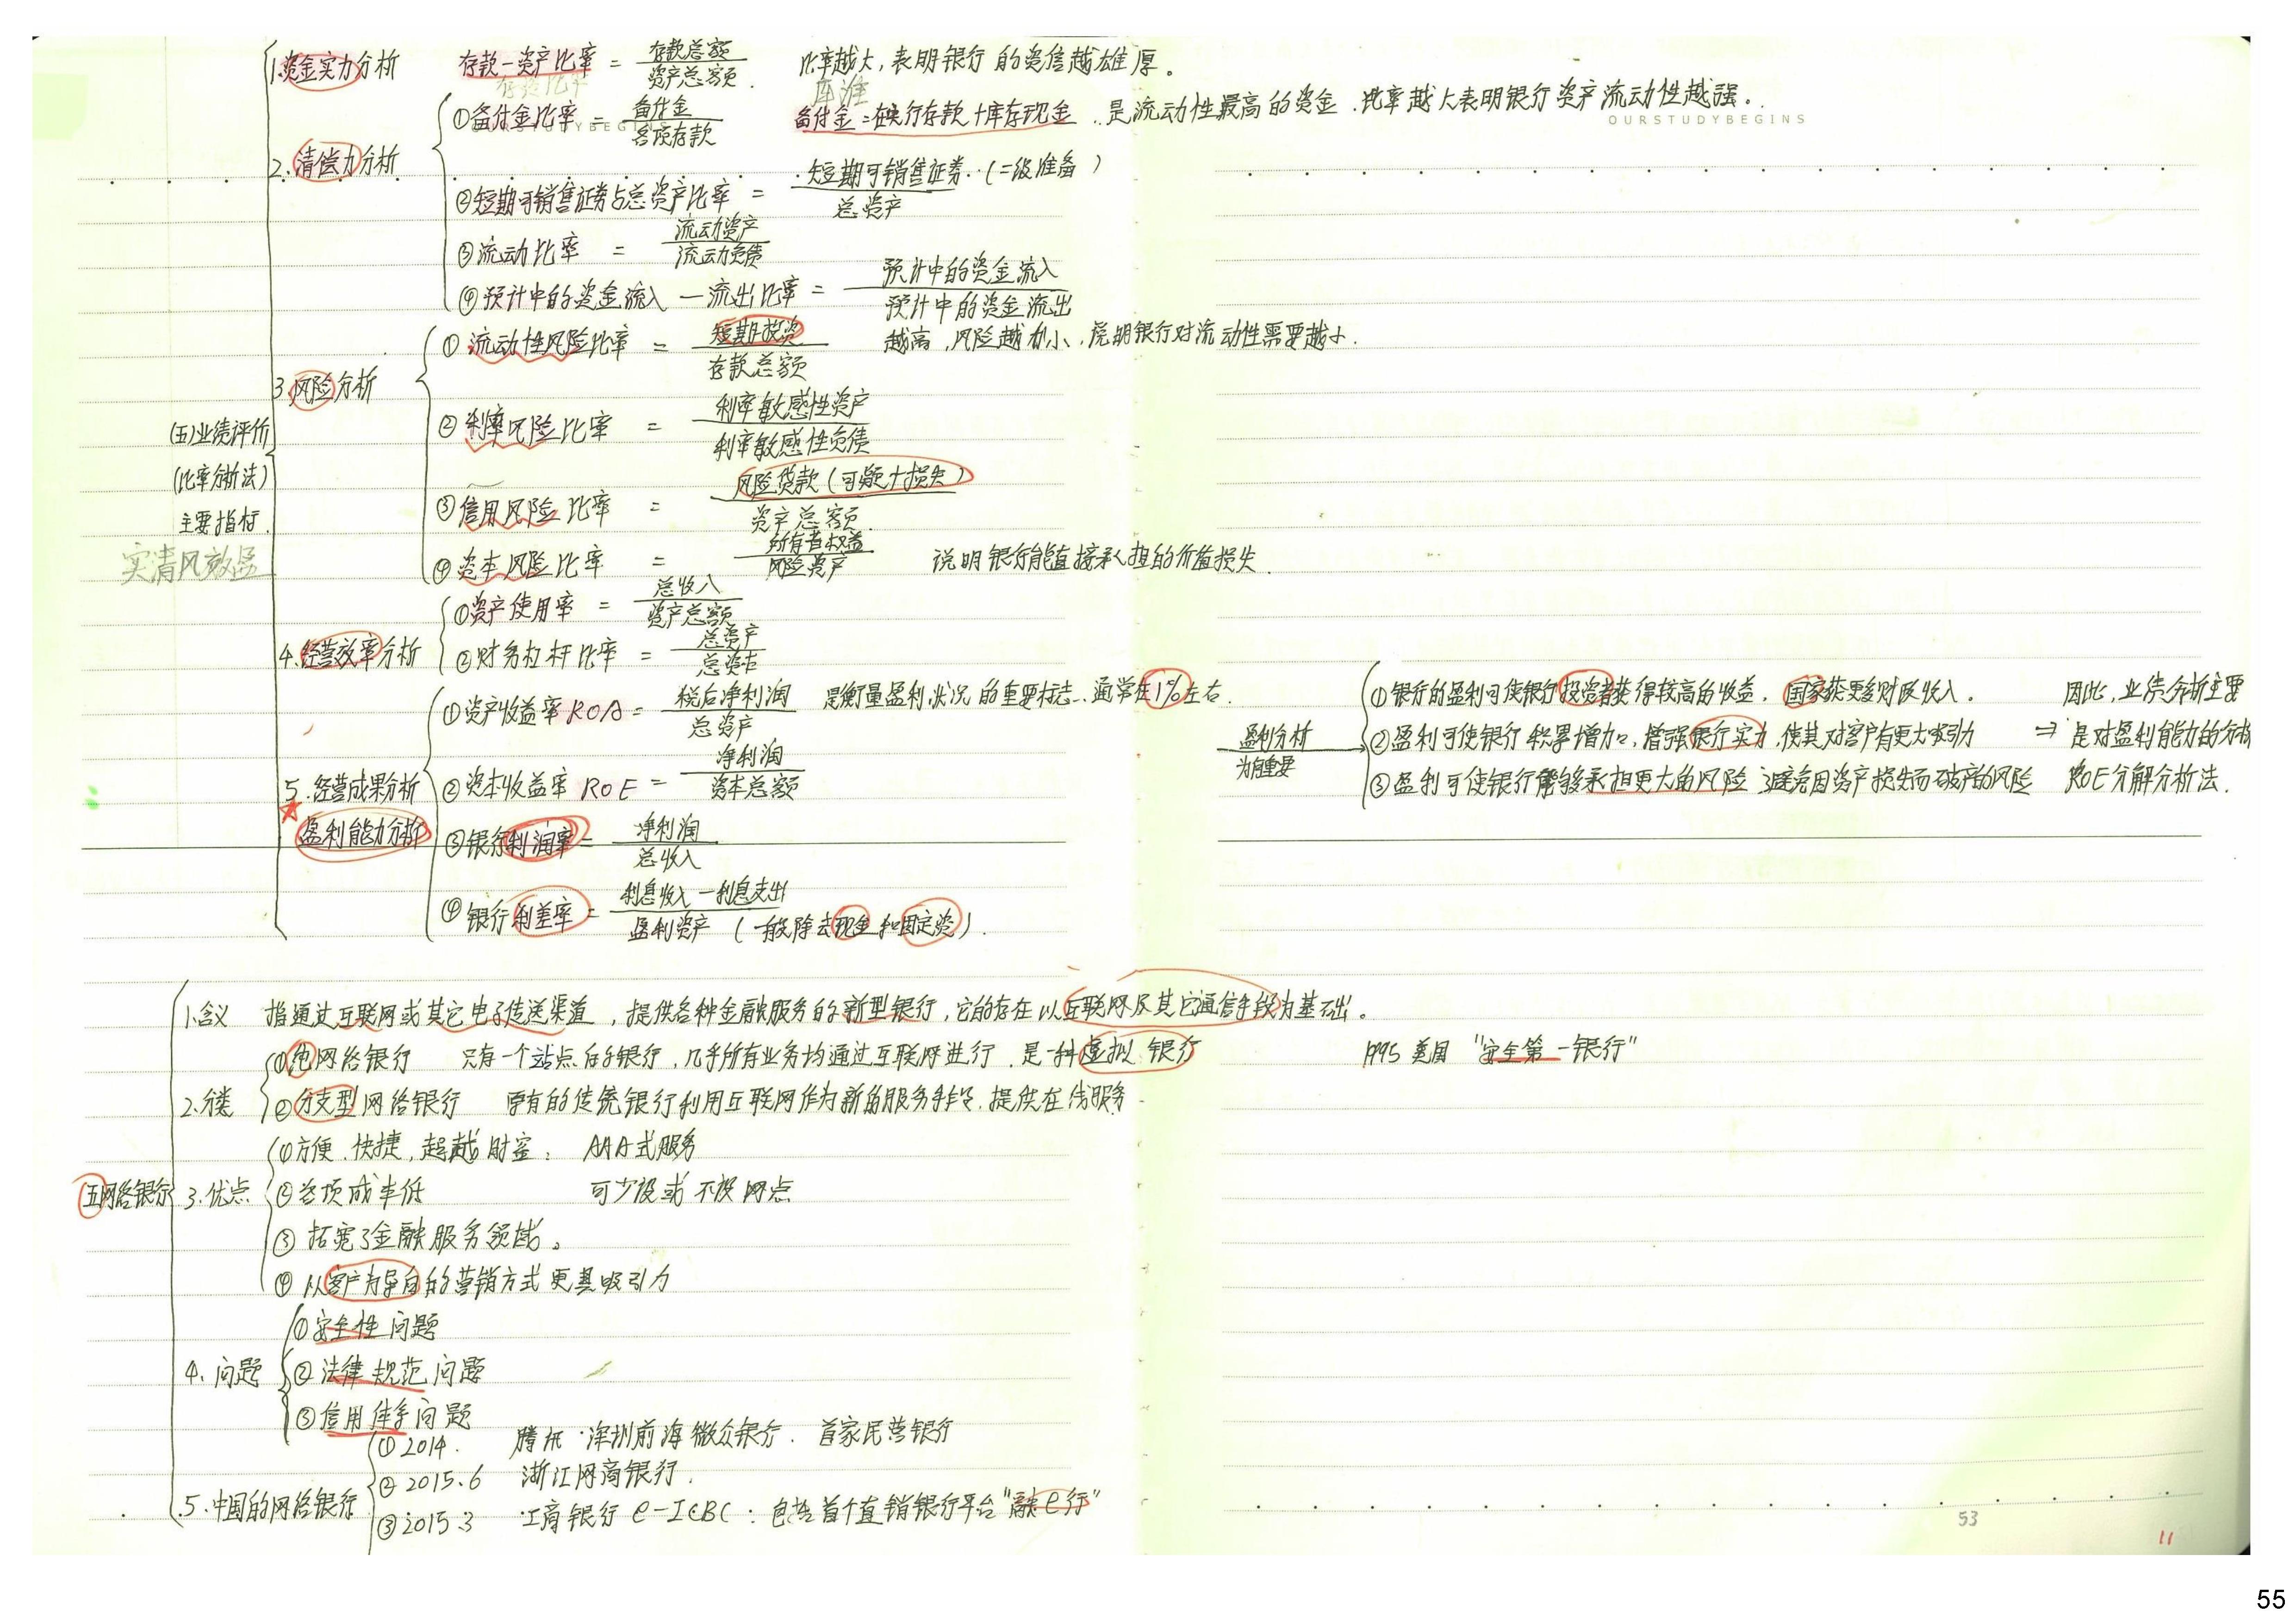 1.资金实力分析 存款—资产比率 = 存款总额 / 资产总额. 比率越大,表明银行的资信越雄厚。
存贷比率 库 准
①备付金比率 = 备付金 / 各项存款 备付金=在央行存款+库存现金,是流动性最高的资金.比率越大表明银行资产流动性越强。
OURSTUDYBEGINS OURSTUDYBEGINS
2.清偿力分析
②短期可销售证券占总资产比率 = 短期可销售证券(二级准备) / 总资产
③流动比率 = 流动资产 / 流动负债
④预计中的资金流入—流出比率 = 预计中的资金流入 / 预计中的资金流出
3.风险分析
①流动性风险比率 = 短期投资 / 存款总额 越高,风险越小,说明银行对流动性需要越小.
②利率风险比率 = 利率敏感性资产 / 利率敏感性负债
③信用风险比率 = 风险贷款(可疑+损失) / 资产总额.
④资本风险比率 = 所有者权益 / 风险资产 说明银行能直接承担的价值损失.
(五)业绩评价
(比率分析法)
主要指标.
实清风效盈
4.经营效率分析
①资产使用率 = 总收入 / 资产总额
②财务杠杆比率 = 总资产 / 总资本
5.经营成果分析
盈利能力分析
①资产收益率ROA = 税后净利润 / 总资产 是衡量盈利状况的重要标志.通常在1%左右.
②资本收益率 ROE = 净利润 / 资本总额
③银行利润率 = 净利润 / 总收入
④银行利差率 = 利息收入—利息支出 / 盈利资产 (一般除去现金和固定资).
盈利分析
为何重要
①银行的盈利可使银行投资者获得较高的收益,国家获更多财政收入.
②盈利可使银行积累增加,增强银行实力,使其对客户有更大吸引力
③盈利可使银行能够承担更大的风险 避免因资产损失而破产的风险
因此,业绩分析主要
⇒是对盈利能力的分析
ROE分解分析法.
五网络银行
1.含义 指通过互联网或其它电子传送渠道,提供各种金融服务的新型银行,它的存在以互联网及其它通信手段为基础。
2.分类
①纯网络银行 只有一个站点的银行,几乎所有业务均通过互联网进行.是一种虚拟银行 1995 美国 "安全第一银行"
②分支型网络银行 原有的传统银行利用互联网作为新的服务手段.提供在线服务
3.优点
①方便、快捷,超越时空; AAA式服务
②各项成本低 可少设或不设网点
③拓宽了金融服务领域。
④以客户为导向的营销方式更具吸引力
4.问题
①安全性问题
②法律规范问题
③信用体系问题
5.中国的网络银行
①2014. 腾讯·深圳前海微众银行.首家民营银行
②2015.6 浙江网商银行.
③2015.3 工商银行 e-ICBC:包括首个直销银行平台"融e行"
53
11
55